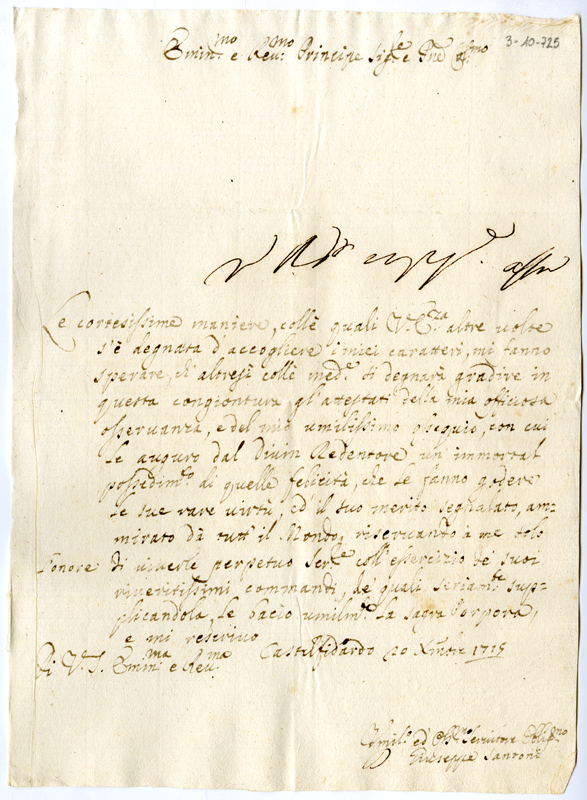 3-10-725
Emin.mo e Rev.mo Principe Sig.re e Pne
Le cortesissime maniere, colle quali V. Em.za altre volte
s'è degnata d'accogliere i miei caratteri, mi fanno
sperare, ch'altresì colle med.e si degnarà gradire in
questa congiontura gl'attestati della mia officiosa
osservanza, e del mio umilissimo ossequio, con cui
le auguro dal Divin Redentore un'immortal
possedim.to di quelle felicità, che le fanno godere
le sue rare virtù, ed il suo merito segnalato, am=
mirato dà tutt'il Mondo, riservando à me solo
l'onore di viverle perpetuo Ser.re coll'essercizio de' suoi
riveritissimi commandi, de' quali seriam.te sup=
plicandola, le bacio umilm.te la sacra Porpora,
e mi rescrivo
Di V. S. Emin.ma e Rev.ma Castelfidardo 20 Xmbre 1719
Umil.o ed Servitore Obligmo
Giuseppe